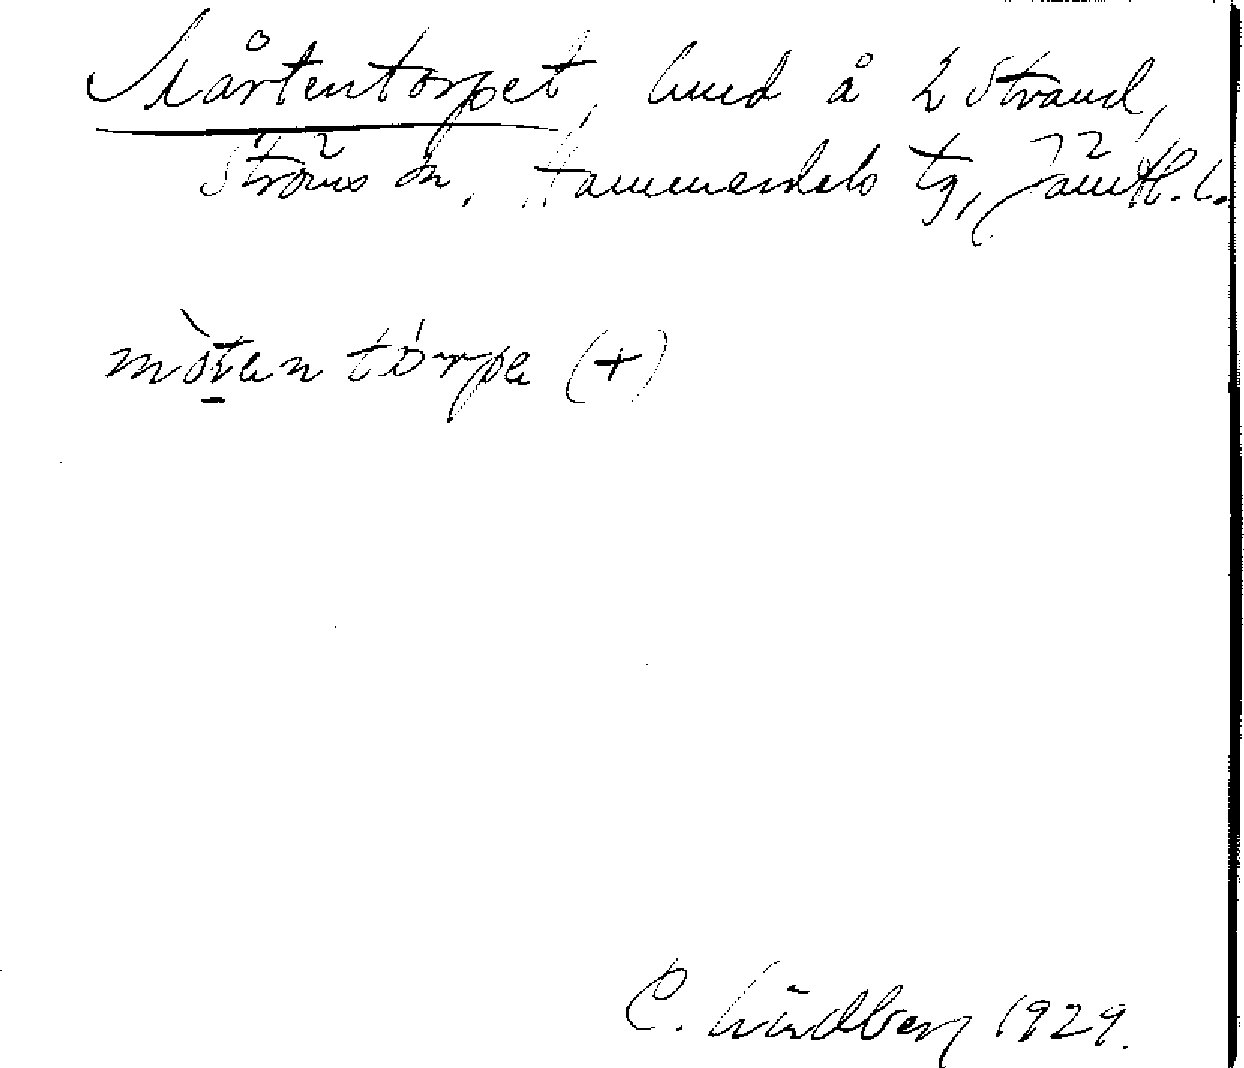 Mårtentorpet, hmd å 2 Strand,
Ströms sn, Hammerdals tg, Jämtl. l.
mòt̠an tórpa (+)
C. Lindberg 1929.